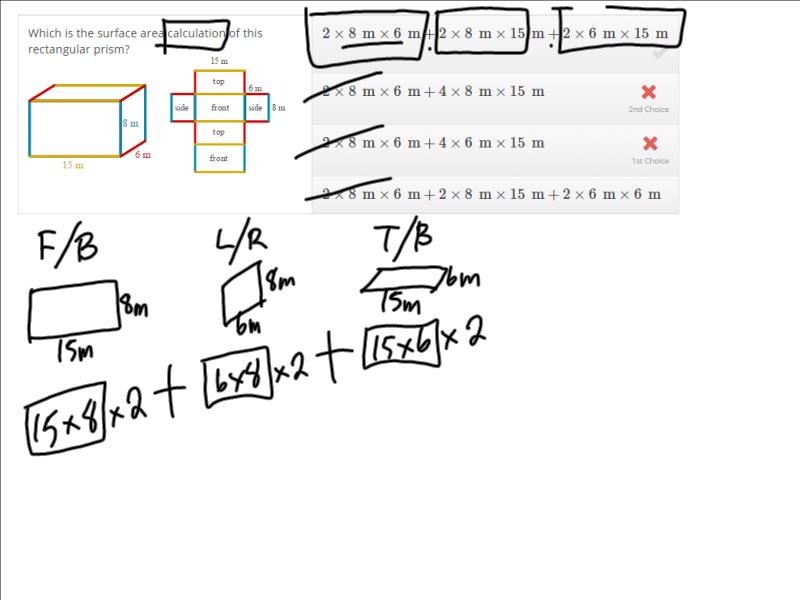 Which is the surface area calculation of this
rectangular prism?
15 m
top
6 m
side
front
side
8 m
top
front
8 m
6 m
15 m
2 × 8 m × 6 m + 2 × 8 m × 15 m + 2 × 6 m × 15 m
2 × 8 m × 6 m + 4 × 8 m × 15 m
2nd Choice
2 × 8 m × 6 m + 4 × 6 m × 15 m
1st Choice
2 × 8 m × 6 m + 2 × 8 m × 15 m + 2 × 6 m × 6 m
F/B
L/R
T/B
8m
15m
8m
6m
6m
15m
15×8 ×2 + 6×8 ×2 + 15×6 ×2